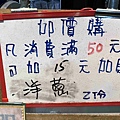 加價購
凡消費滿50元
可加15元加購
洋蔥